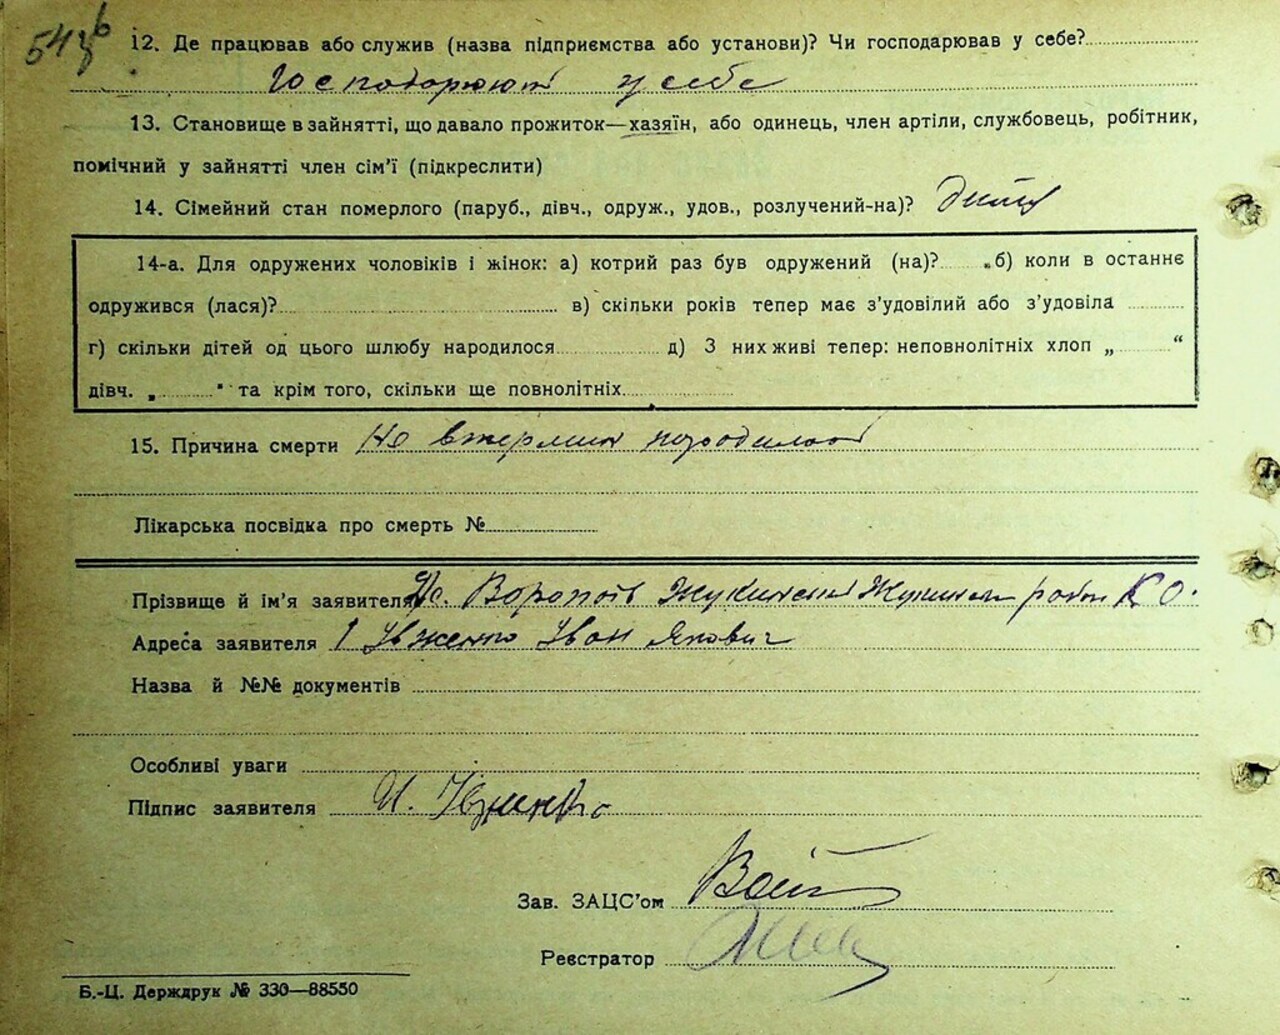 12. Де працював або служив (назва підприємства або установи)? Чи господарював у себе?
Господорюют у себе
13. Становище в зайнятті, що давало прожиток—хазяїн, або одинець, член артіли, службовець, робітник,
помічний у зайнятті член сім'ї (підкреслити)
14. Сімейний стан померлого (паруб., дівч., одруж., удов., розлучений-на)? дитя
14-а. Для одружених чоловіків і жінок: а) котрий раз був одружений (на)? б) коли в останнє
одружився (лася)? в) скільки років тепер має з'удовілий або з'удовіла
г) скільки дітей од цього шлюбу народилося д) З них живі тепер: неповнолітніх хлоп „ “
дівч. „ " та крім того, скільки ще повнолітніх
15. Причина смерти Не народилос
Лікарська посвідка про смерть №
Прізвище й ім'я заявителя Вороп К О.
Адреса заявителя Іван Якович
Назва й №№ документів
Особливі уваги
Підпис заявителя И.
Зав. ЗАЦС'ом
Реєстратор
Б.-Ц. Держдрук № 330—88550